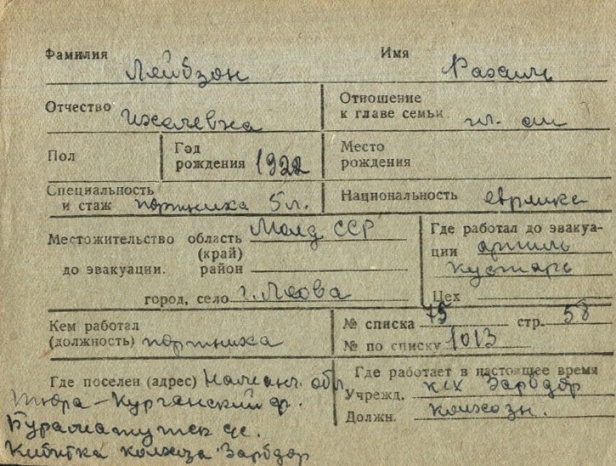 Фамилия Лейбзон Имя Рахиль
Отчество Ихелевна Отношение к главе семьи чл. сем
Пол Год рождения 1922 Место рождения
Специальность и стаж портниха 5 л. Национальность еврейка
Местожительство до эвакуации. область (край) Молд ССР
район
город, село г. Леова
Где работал до эвакуации артиль кустарь
Цех
Кем работал (должность) портниха
№ списка 75 стр. 58
№ по списку 1013
Где поселен (адрес) Наманг. обл.
Тюра-Курганский р.
с/с.
Кибитка колхоза Зарбдор
Где работает в настоящее время
Учрежд. к/х Зарбдор
Должн. колхозн.